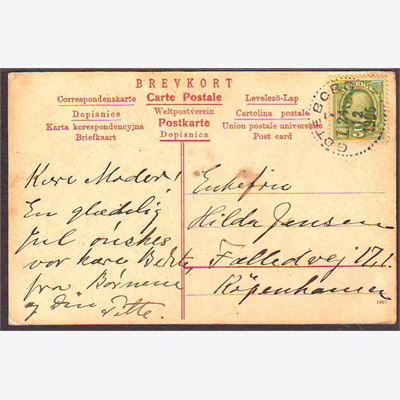 BREVKORT
Correspondenzkarte Carte Postale Levelező-Lap
Dopisnice Weltpostverein Cartolina postale
Karta korespondencyjna Postkarte Union postale universelle
Briefkaart Dopisnica Post card
GÖTEBORG
Kære Moder!
En glædelig
Jul ønskes
vor kære
fra Børnene
og Din
Enkefru
Hilda Jansen
Fælledvej 17,1.
Köpenhamn